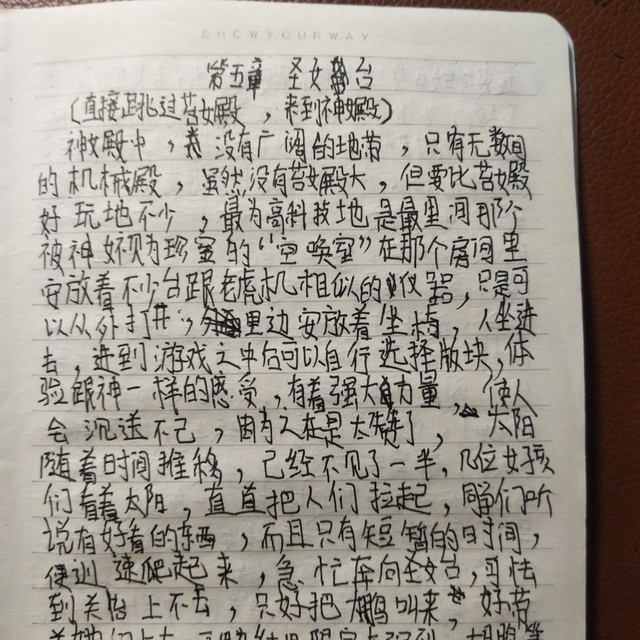 SHOWYOURWAY
第五章 圣女台
(直接跳过苦女殿，来到神女殿)
神女殿中，没有广阔的地带，只有无数间
的机械殿，虽然没有苦女殿大，但要比苦女殿
好玩地不少，最为高科技地是最里间那个
被神女视为珍宝的“空唤室”在那个房间里
安放着不少台跟老虎机相似的仪器，只是可
以从外打开，里边安放着坐椅，人坐进
去，进到游戏之中后可以自行选择版块，体
验跟神一样的感受，有着强大自力量，使人
会沉迷不已，因为之在是太爽了，太阳
随着时间推移，已经不见了一半，几位女孩
们看着太阳，直直把人们拉起，同学们所
说有好看的东西，而且只有短暂的日时间，
便训速爬起来，急忙奔向圣女台，可怯
到关台上不去，只好把大鹏叫来，好带